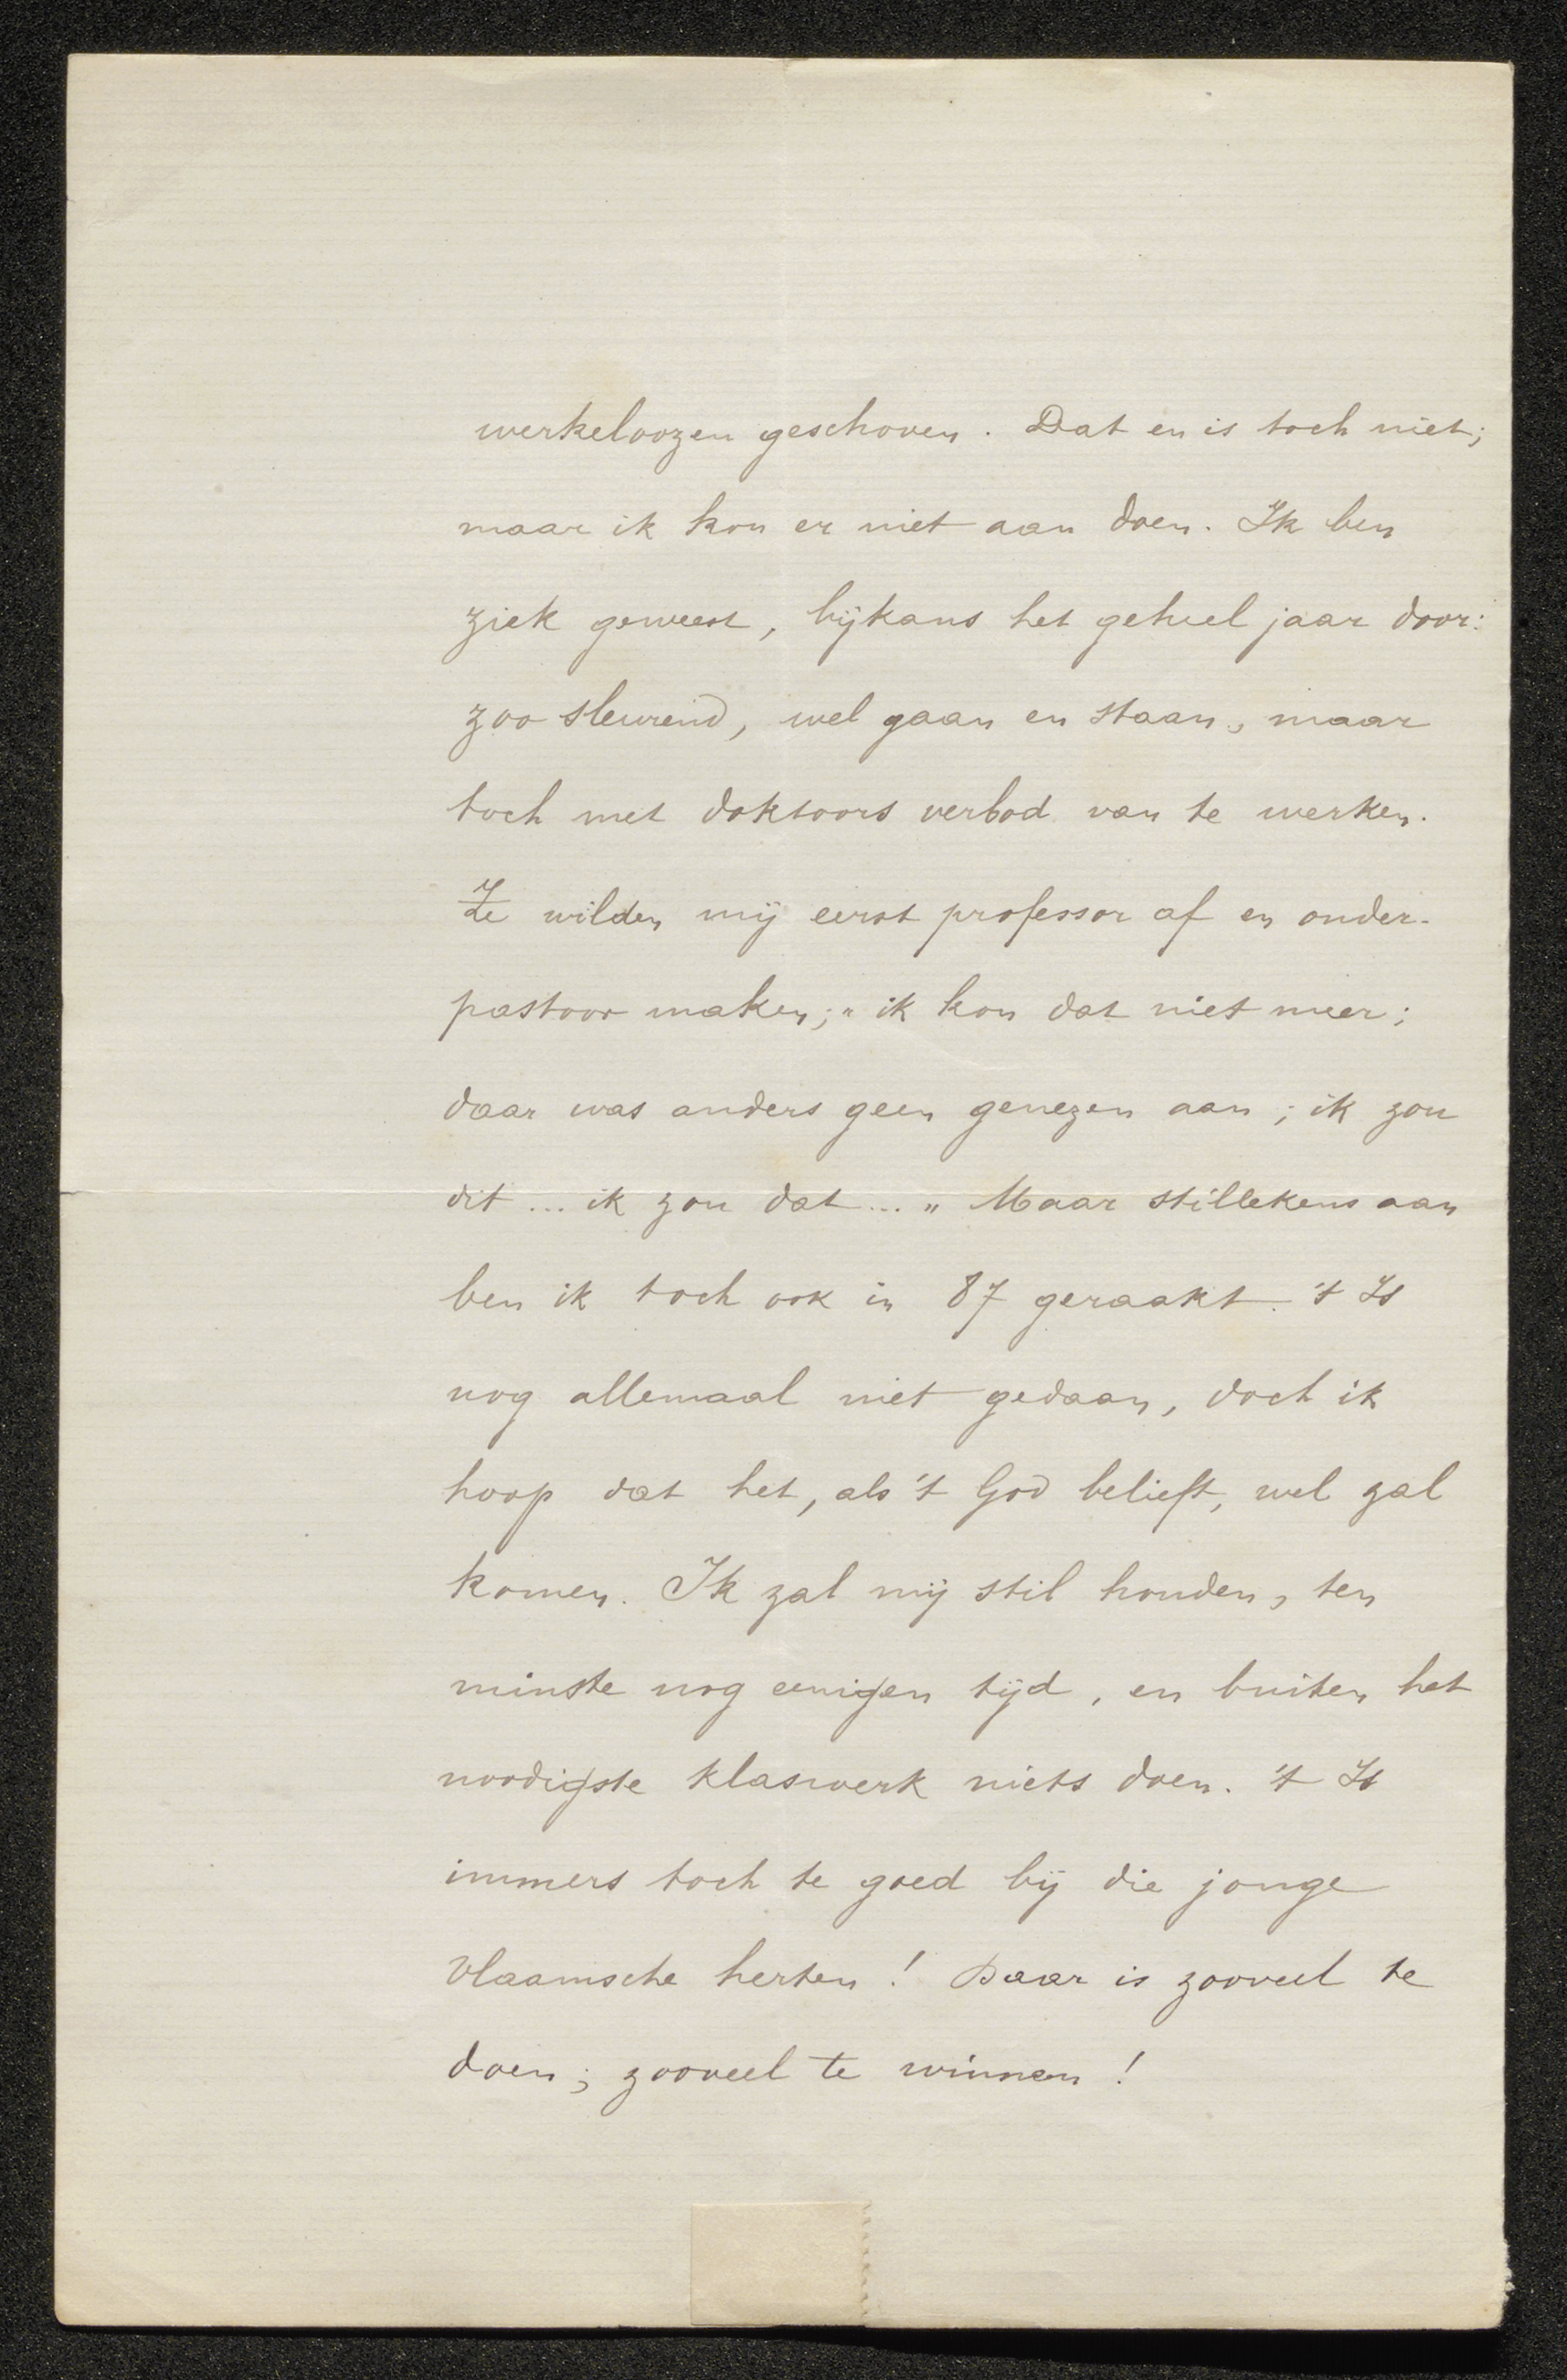 werkeloozen geschoven. Dat en is toch niet;
maar ik kon er niet aan doen. Ik ben
ziek geweest, bijkans het geheel jaar door:
zoo sleurend, wel gaan en staan, maar
toch met doktoors verbod van te werken.
Ze wilden mij eerst professor af en onder-
pastoor maken; „ ik kon dat niet meer;
daar was anders geen genezen aan; ik zou
dit ... ik zou dat ... „ Maar stillekens aan
ben ik toch ook in 87 geraakt. 't Is
nog allemaal niet gedaan, doch ik
hoop dat het, als 't God belieft, wel zal
komen. Ik zal mij stil houden, ten
minste nog eenigen tijd, en buiten het
noodigste klaswerk niets doen. 't Is
immers toch te goed bij die jonge
vlaamsche herten! Daar is zooveel te
doen; zooveel te winnen!